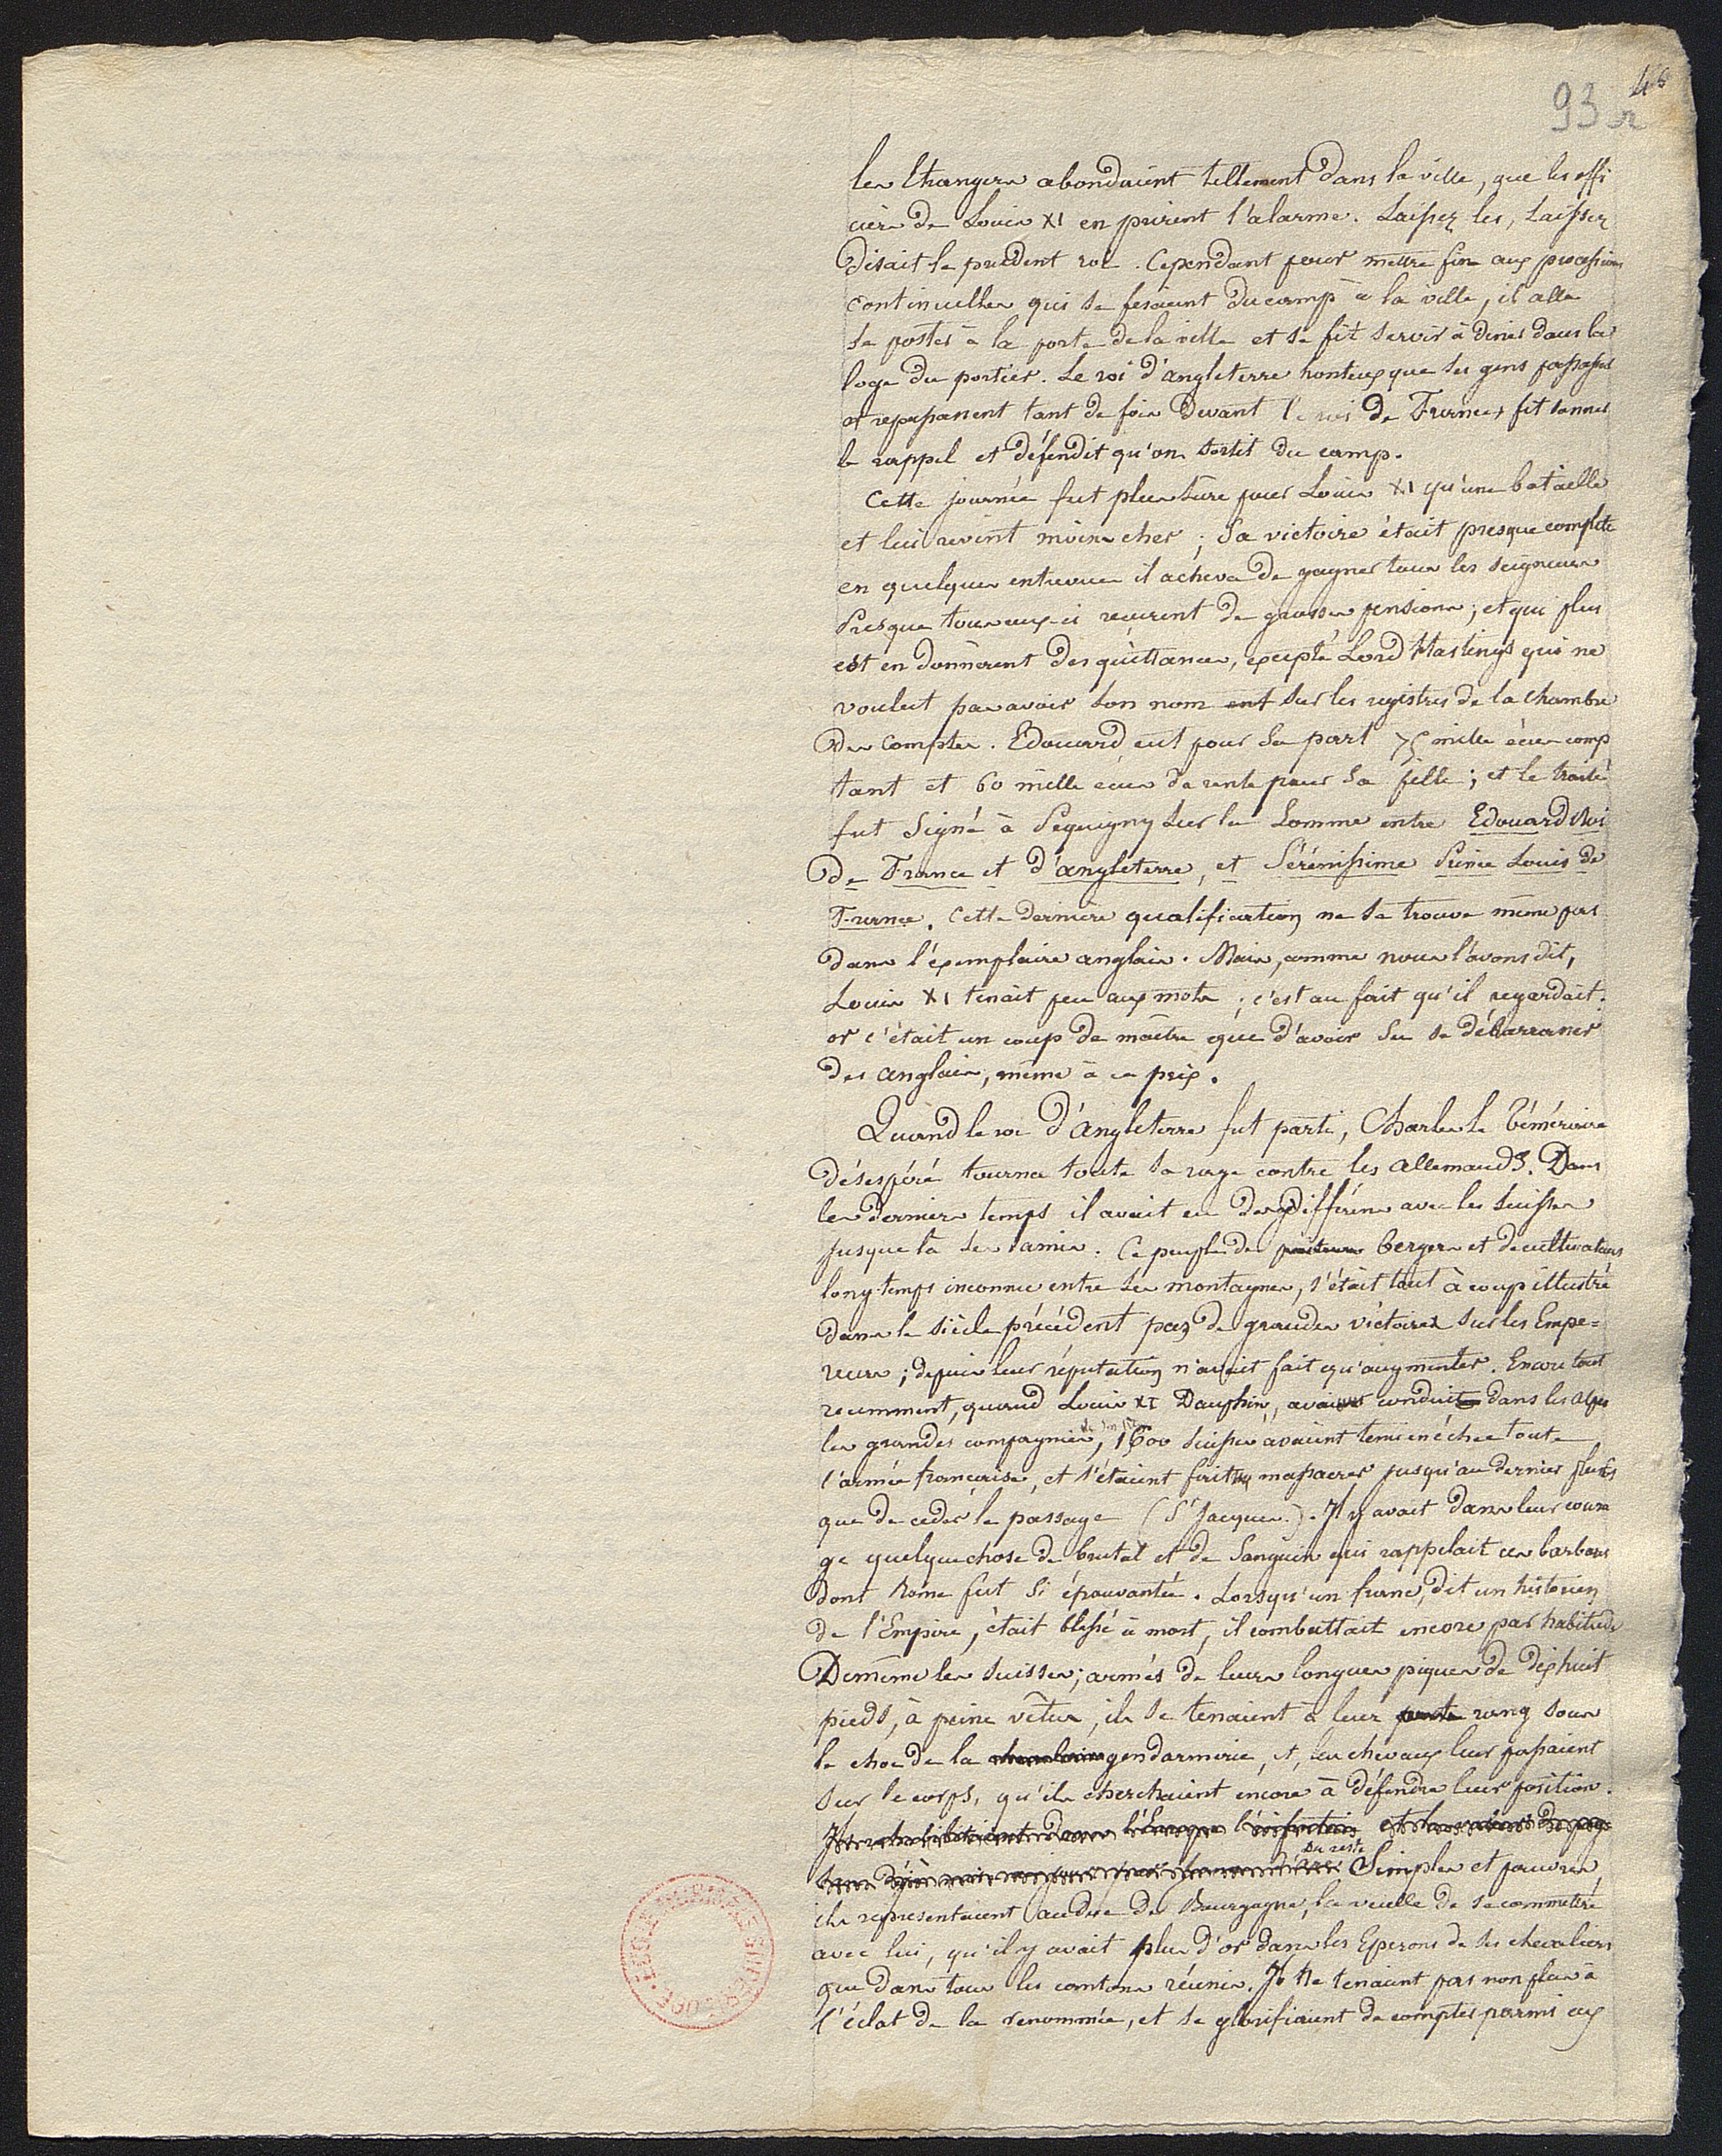 48
93 r
les Etrangers abondaient tellement dans la ville, que les offi
ciers de Louis XI en prirent l'alarme. Laissez les, Laissez
disait le prudent roi. Cependant pour mettre fin aux processions
continuelles qui se fesaient du camp à la ville, il alla
se poster à la porte de la ville et se fit servir à diner dans la
loge du portier. Le roi d'angleterre honteux que ses gens passassent
et repassassent tant de fois devant le roi de France, fit sonner
le rappel et défendit qu'on sortit du camp.
Cette journée fut plus sûre pour Louis XI qu'une bataille
et lui revint moins cher; Sa victoire était presque complète
en quelques entrevues il acheva de gagner tous les seigneurs
Presque tous ceux-ci reçurent de grosses pensions; et qui plus
est en donnèrent des quittances, excepté Lord Hastings qui ne
voulut pas avoir son nom sur les registres de la chambre
des Comptes. Edouard eut pour sa part 75 mille écus comp
tant et 60 mille écus de rente pour sa fille; et le traité
fut Signé à Pequigny sur la Somme entre Edouard Roi
de France et d'angleterre, et Sérénissime Prince Louis de
France. Cette dernière qualification ne se trouve même pas
dans l'exemplaire anglais. Mais, comme nous l'avons dit,
Louis XI tenait peu aux mots; c'est au fait qu'il regardait.
or c'était un coup de maître que d'avoir su se débarrasser
des anglais, même à ce prix.
Quand le roi d'Angleterre fut parti, Charles le Téméraire
désespéré tourna toute sa rage contre les allemands. Dans
les derniers temps il avait eu des différens avec les Suisses
jusque là ses amis. Ce peuple de bergers et de cultivateurs
long-temps inconnu entre ses montagnes, s'était tout à coup illustré
dans le siècle précédent par de grandes victoires sur les Empe=
reurs; depuis leur réputation n'avait fait qu'augmenter. Encore tout
recemment, quand Louis XI Dauphin, avait conduit dans les alpes
les grandes compagnies, 1600 Suisses avaient tenu en échec toute
l'armée française, et s'étaient fait massacrer jusqu'au dernier plutôt
que de ceder le passage (St Jacques). Il y avait dans leur coura
ge quelque chose de brutal et de Sanguin qui rappelait ces barbares
dont Rome fut si épouvantée. Lorsqu'un franc, dit un historien
de l'Empire, était blessé à mort, il combattait encore par habitude
De même les Suisses; armés de leurs longues piques de dix huit
pieds, à peine vêtus, ils se tenaient à leur rang sous
le choc de la gendarmerie, et, les chevaux leur passaient
sur le corps, qu'ils cherchaient encore à défendre leur position.
Du reste
Simples et pauvres,
ils representaient au duc de Bourgogne, la veille de se commettre
avec lui, qu'il y avait plus d'or dans les Eperons de ses chevaliers
que dans tous les cantons réunis. Ils ne tenaient pas non plus à
l'éclat de la renommée, et se glorifiaient de compter parmi eux